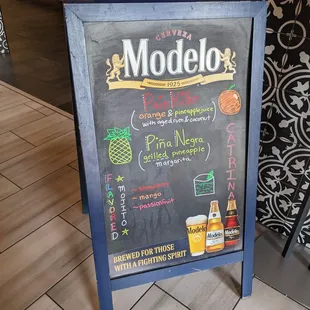 CERVEZA
Modelo
1925
(orange & pineapple juice)
with aged rum & coconut
Piña Negra
(grilled pineapple)
margarita
CATRINA
FLAVORED
*MOJITO*
- mango
- passionfruit
BREWED FOR THOSE
WITH A FIGHTING SPIRIT
Modelo